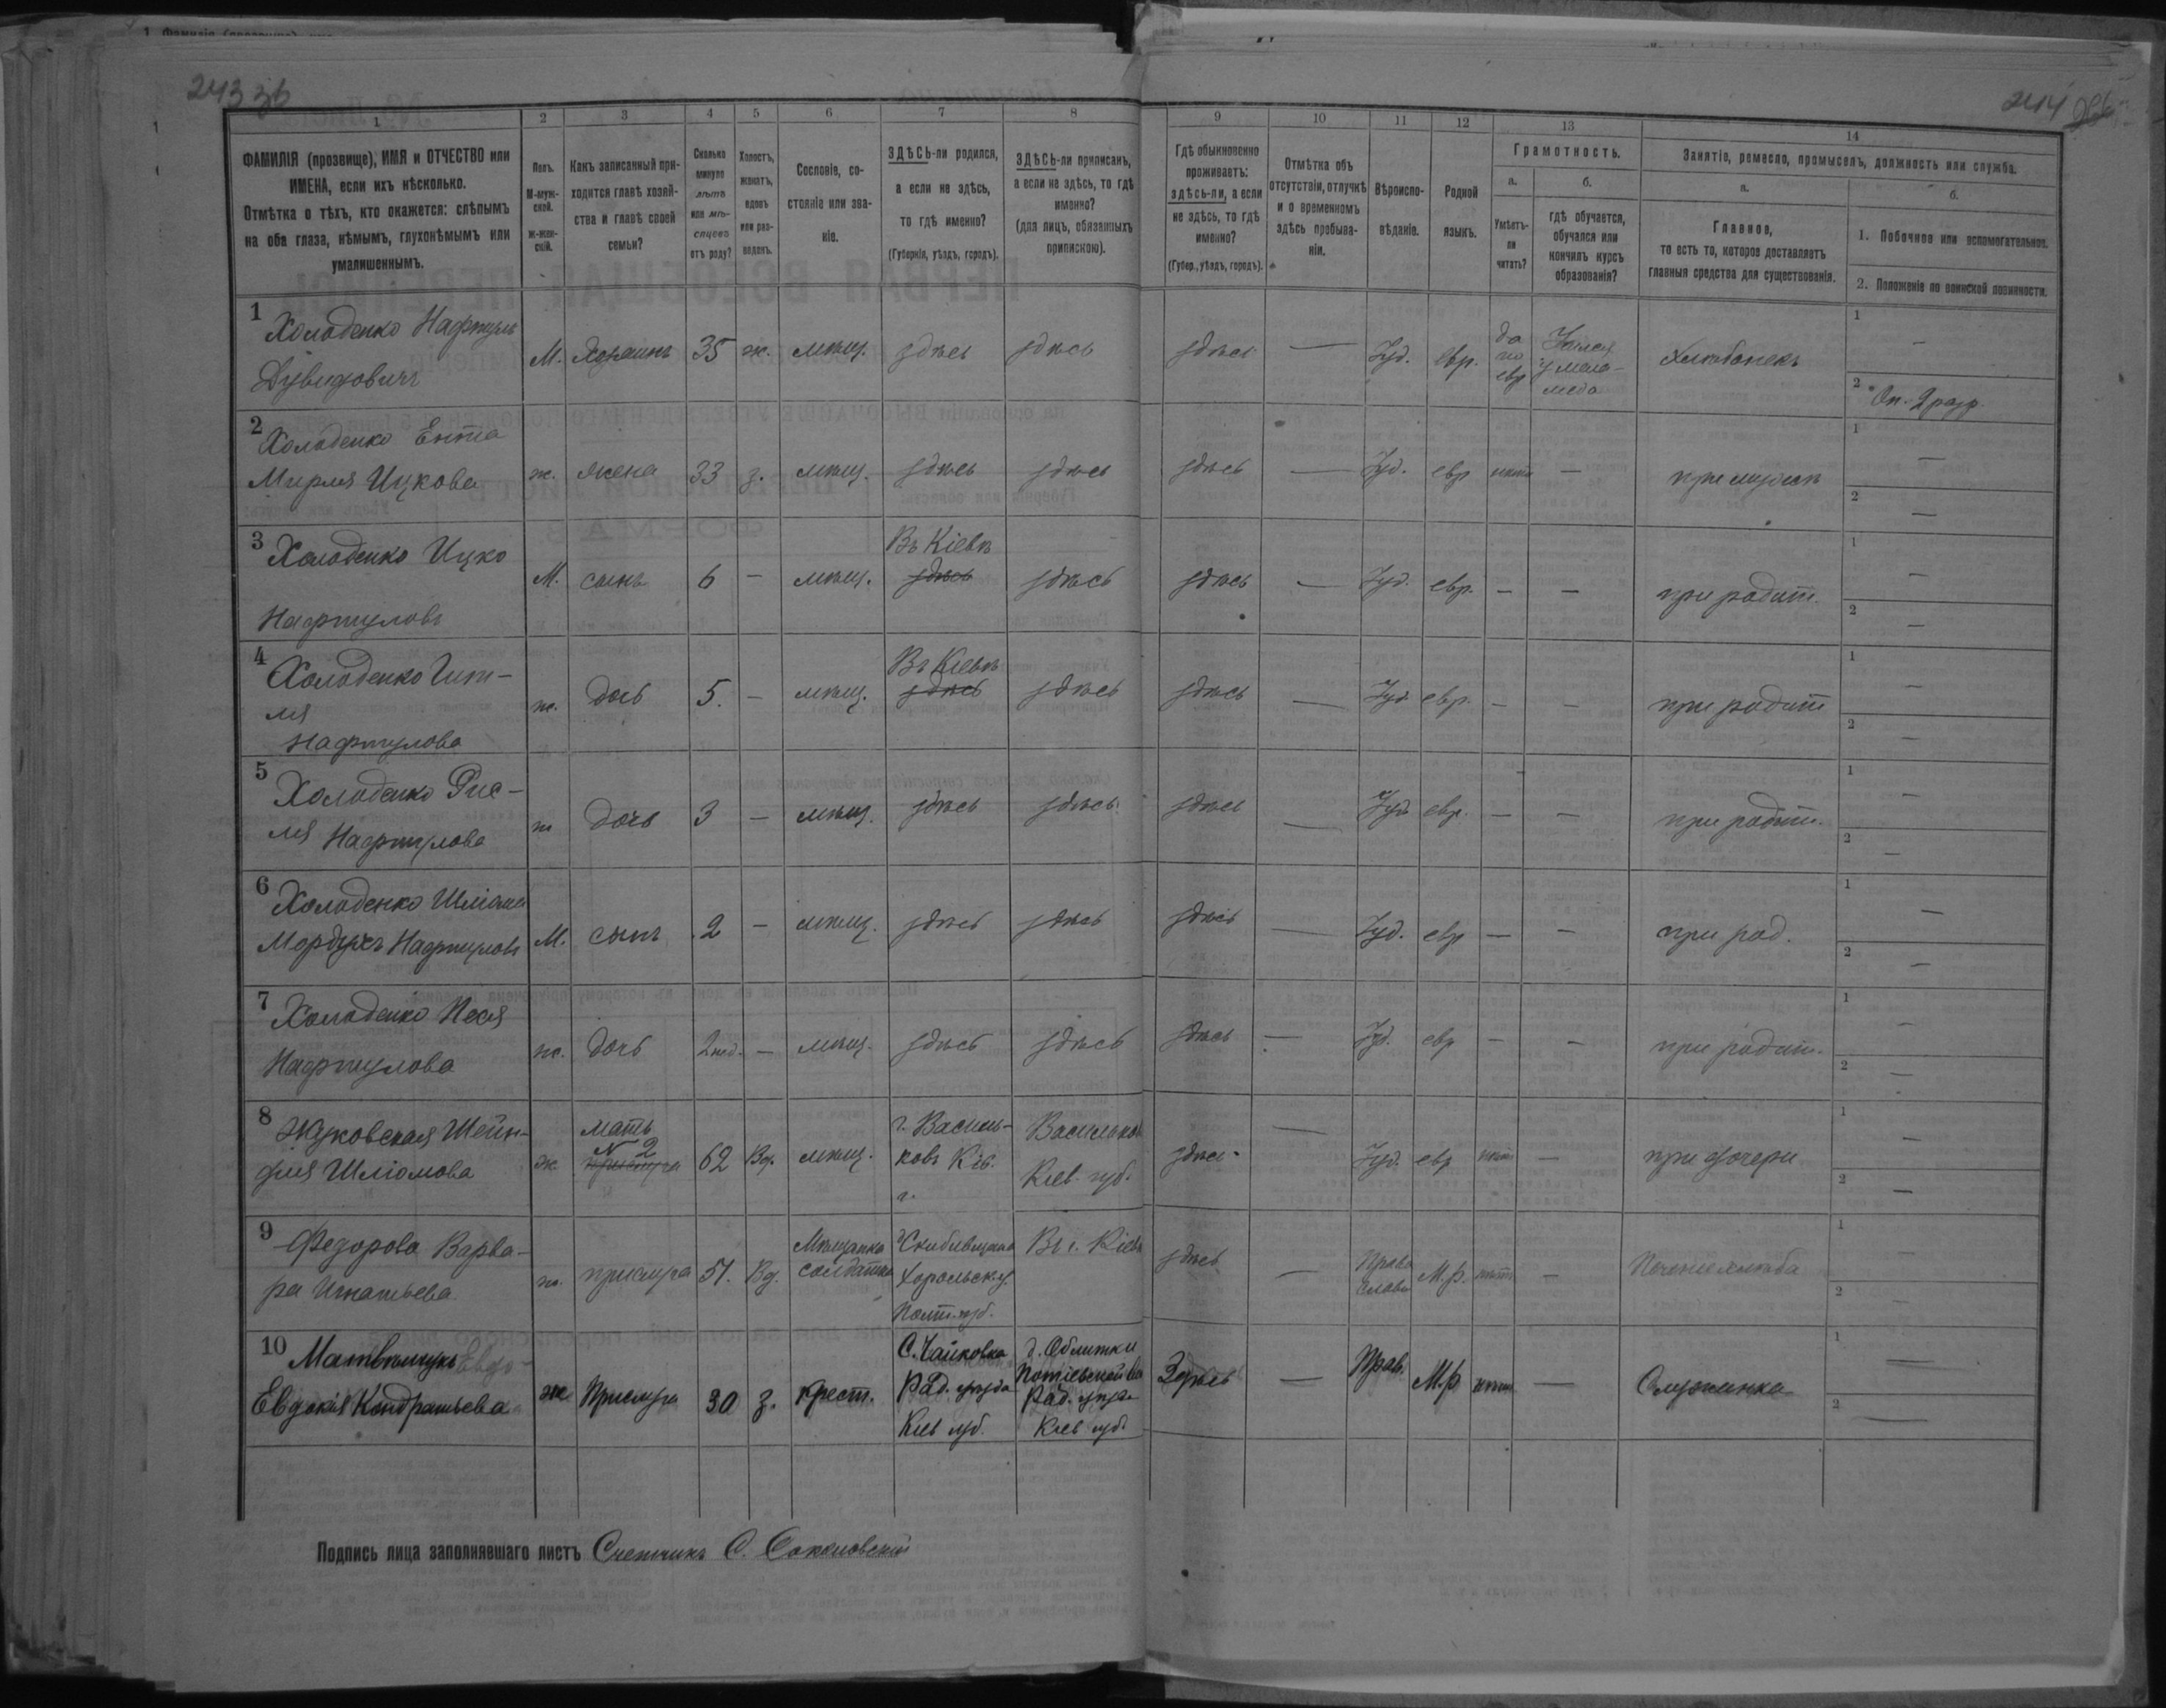 243 зв
244
1 2 3 4 5 6 7 8 9 10 11 12 13 14
ФАМИЛІЯ (прозвище), ИМЯ и ОТЧЕСТВО или
ИМЕНА, если ихъ нѣсколько.
Отмѣтка о тѣхъ, кто окажется: слѣпымъ
на оба глаза, нѣмымъ, глухонѣмымъ или
умалишеннымъ.
Полъ.
М-муж-
ской.
ж-жен-
скій.
Какъ записанный при-
ходится главѣ хозяй-
ства и главѣ своей
семьи?
Сколько
минуло
лѣтъ
или мѣ-
сяцевъ
отъ роду?
Холостъ,
женатъ,
вдовъ
или раз-
веденъ.
Сословіе, со-
стояніе или зва-
ніе.
ЗДѢСЬ-ли родился,
а если не здѣсь,
то гдѣ именно?
(Губернія, уѣздъ, городъ).
ЗДѢСЬ-ли приписанъ,
а если не здѣсь, то гдѣ
именно?
(для лицъ, обязанныхъ
припискою).
Гдѣ обыкновенно
проживаетъ:
здѣсь-ли, а если
не здѣсь, то гдѣ
именно?
(Губер., уѣздъ, городъ).
Отмѣтка объ
отсутствіи, отлучкѣ
и о временномъ
здѣсь пребыва-
ніи.
Вѣроиспо-
вѣданіе.
Родной
языкъ.
Грамотность.
а.
Умѣетъ-
ли
читать?
б.
гдѣ обучается,
обучался или
кончилъ курсъ
образованія?
Занятіе, ремесло, промыселъ, должность или служба.
а.
Главное,
то есть то, которое доставляетъ
главныя средства для существованія.
б.
1. Побочное или вспомогательное.
2. Положеніе по воинской повинности.
1 Холоденко Нафтуль
Дувидовичъ
М. Хозяинъ 35 ж. мѣщ. здѣсь здѣсь здѣсь — Іуд. евр.
да
по
евр
Учился
у мела-
меда
Хлѣбопекъ
1 —
2 Оп. 2 разр.
2 Холоденко Ента
Мирля Ицкова
ж. жена 33 з. мѣщ. здѣсь здѣсь здѣсь — Іуд. евр нѣтъ — при мужѣ
1 —
2 —
3 Холоденко Ицко
Нафтуловъ
М. сынъ 6 — мѣщ.
Въ Кіевѣ
здѣсь
здѣсь здѣсь — Іуд. евр. — — при родит.
1 —
2 —
4 Холоденко Гит-
ля
Нафтулова
ж. дочь 5. — мѣщ.
Въ Кіевѣ
здѣсь
здѣсь здѣсь — Іуд евр. — — при родит
1 —
2 —
5 Холоденко Рис-
ля Нафтулова
ж дочь 3 — мѣщ. здѣсь здѣсь здѣсь — Іуд евр. — — при родит.
1 —
2 —
6 Холоденко Шліома
Мордухъ Нафтуловъ
М. сынъ 2 — мѣщ. здѣсь здѣсь здѣсь — Іуд. евр — — при род.
1 —
2 —
7 Холоденко Нехя
Нафтулова
ж. дочь 2 нед. — мѣщ. здѣсь здѣсь здѣсь — Іуд. евр — — при родит.
1 —
2 —
8 Жуковская Шейн-
для Шліомова
ж.
мать
N 2
прислуга
62 Вд. мѣщ.
г. Василь-
ковъ Кіев.
г.
Васильковъ
Кіев. губ.
здѣсь — Іуд. евр нѣтъ — при дочери
1 —
2 —
9 Федорова Варва-
ра Игнатьева
ж. прислуга 51. Вд.
Мѣщанка
солдатка
Хорольск. у.
Полт. губ.
Въ г. Кіевѣ
здѣсь —
Право
слав.
М. р. нѣтъ — Печеніе хлѣба
1 —
2 —
10 Матвѣйчукъ
Евдокія Кондратьева
ж Прислуга 30 з. крест.
С. Чайковка
Рад. уѣзда
Кіев губ.
д. Облитки
Потіевской вол
Рад. уѣзда
Кіев губ.
Здѣсь — Прав. М.р нѣтъ — Служанка
1 —
2 —
Подпись лица заполнявшаго листъ Счетчикъ С. Соколовскій